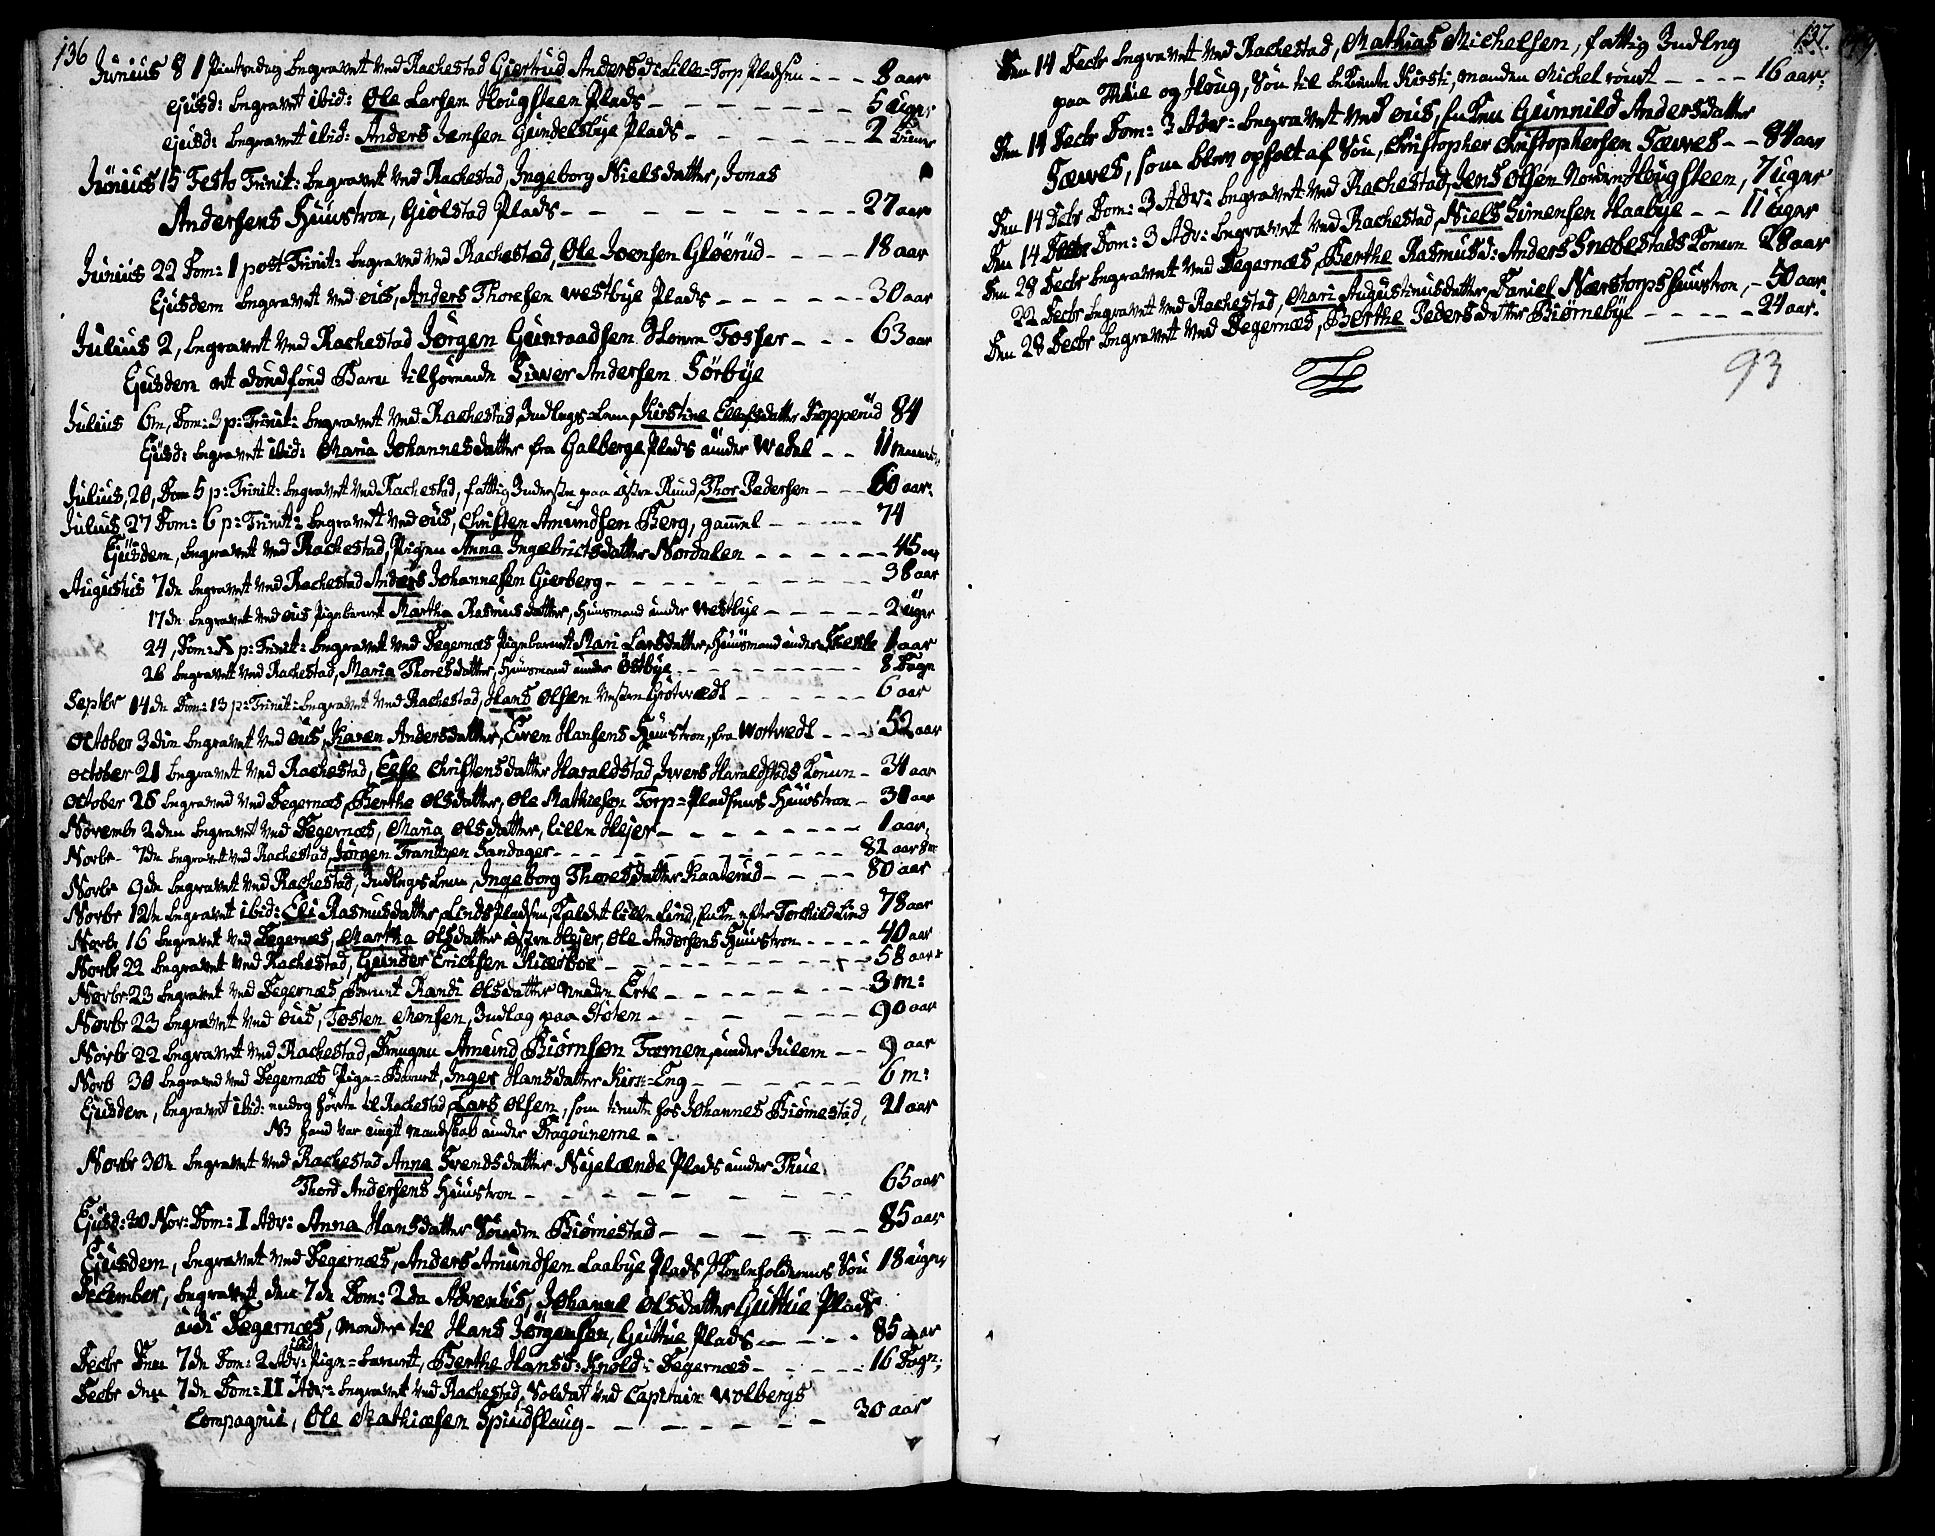 136
Junius 8 1 Pintsedag begravet ved Rachestad Giertrud Andersd: Lille=Torp Pladsen - - - 8 aar
ejusd: begravet ibid: Ole Larsen Hougsteen Plads - - - 5 uger
ejusd: begravet ibid: Anders Jensen Gundelsbye Plads - - - 2
Junius 15 Festo Trinit: begravet ved Rachestad, Ingeborg Nielsdatter, Jonas
Andersens Huustroe, Giølstad Plads - - - 27 aar
Junius 22 Dom: 1 post Trinit: begraved ved Rachestad, Ole Joensen Gløerud - - - 18 aar
Ejusdem begravet ved øus, Anders Thoresen westbye Plads - - - 30 aar
Julius 2, begravet ved Rachestad Jørgen Gunraadsen Tosser - - - 63 aar
Ejusdem et dødfød Barn tilhørende Siwer Andersen Sørbye
Julius 6te, Dom: 3 p: Trinit: begravet ved Rachestad Indlags=Lem, Kirstine Ellefsdatter Kopperud 84
Ejusd: begravet ibid: Maria Johannesdatter fra Galberge Plads under Wedel - - 11
Julius, 20, Dom 5 p: Trinit: begravet ved Rachestad, fattig Inderste paa østre Rud, Thor Pedersen - - - 60 aar
Julius 27 Dom: 6 p: Trinit: begravet ved øus, Christen Amundsen Berg, gammel - - - 74
Ejusdem, begravet ved Rachestad, Pigen Anna Ingebrictsdatter Nordalen - - - 45 aar
Augustus 7de begravet ved Rachestad Anders Johannesen Gierberg - - - 38 aar
17de begravet ved øus Pigebarnet Martha Rasmusdatter, Huusmand under westbye - - - 2 uger
24, Dom: X p: Trinit: begravet ved Degernæs Pigebarnet Mari Larsdatter, Huusmand under 1 aar
26 begravet ved Rachestad, Maria Thoresdatter, Huusmand under Østbye - - - 8 Dage
Septbr 14de Dom: 13 p: Trinit: begravet ved Rachestad, Hans Olsen Grøtwedt - - - 6 aar
October 3die begravet ved øus, Karen Andersdatter, Ewen Hansens Huustroe, fra Wortwedt - - - 52 aar
October 21 begravet ved Rachestad, Else Christensdatter Haraldstad, Iwers Haraldstads Konen - 34 aar
October 26 begraved ved Degernæs, Berthe Olsdatter, Ole Mathiesen Torp=Pladsens Huustroe - 30 aar
Novembr 2den begravet ved Degernæs, Maria Olsdatter, lille Hejer - - - 1 aar
Novbr - 7de begravet ved Rachestad, Jørgen Frantzen Sandager - - - 82 aar 8
Novbr 9de begravet ved Rachestad, Indlagslem, Ingeborg Thoresdatter Kaaterud - - - 80 aar
Novbr 12te begravet ibid: Eli Rasmusdatter, Linds Pladsen, Kaldet lille Lind, Enke efter Torchild Lind 78 aar
Novbr 16 begravet ved Degernæs, Martha Olsdatter østre Hejer, Ole Andersens Huustroe - - - 40 aar
Novbr 22 begravet ved Rachestad, Gunder Ericksen Kiærboe - - - 58 aar
Novbr 23 begravet ved Degernæs, Barnet Randi Olsdatter nedre Erte - - - 3 m:
Novbr 23 begravet ved øus, Tosten Monsen, Indlag paa Stoten - - - 90 aar
Novbr 22 begravet ved Rachestad, Drengen Amund Biørnsen Tæmen, under Julem - - 9 aar
Novb 30 begraved ved Degernæs Pige=Barnet, Inger Hansdatter Kirk=Eng - - - 6 m:
Ejusdem, begravet ibid: nedog hørte til Rachestad, Lars Olsen, som tiente hos Johannes Biørnestad, 21 aar
NB hand var ungt mandskab under Dragounerne
Novbr 30te begravet ved Rachestad Anna Svendsdatter Nyelænde Plads under Thue
Thord Andersens Huustroe - - - 65 aar
Ejusd: 30 Nov: Dom: I Adv: Anna Hansdatter Søndre Biørnestad - - - 85 aar
Ejusdem, begravet ved Degernæs, Anders Amundsen Laabye Plads, Søn 18 uger
December, begravet den 7de Dom: 2da Adventus, Johanne Olsdatter Guttue Plads
udi Degernæs, Moder til Hans Jørgensen, Guttue Plads - - - 85 aar
Decbr Den 7de Dom: 2 Adv: ibid Pige=barnet, Berthe Hansd: Knold: Degernæs - - - 16 Dage;
Decbr den 7de Dom: II Adv: begravet ved Rachestad, Soldat ved Capitain Wolbergs
Compagnie, Ole Mathiæsen Spindflaug - - - 30 aar
137
Den 14 Decbr begravet ved Rachestad, Mathias Michelsen, fattig Indleg
paa Thue og Houg, Søn til bekiente Kirsti, manden Michel rømt - - - 16 aar:
Den 14 Decbr Dom: 3 Adv: begravet ved øus, Enken Gunnild Andersdatter
Sæwes, som blev opholt af Søn, Christopher Christophersen Sæwes - - 84 aar
Den 14 Decbr Dom: 3 Adv: begravet ved Rachestad, Jens Olsen Nordre Hougsteen, 7 uger
Den 14 Decbr Dom: 3 Adv: begravet ved Rachestad, Niels Simensen Haabye - - 11 uger
Den 28 Decbr begravet ved Degernæs, Berthe Rasmusd: Anders Snobestads Konen 28 aar
22 Decbr begravet ved Rachestad, Mari Augustinusdatter, Daniel Næstorps huustroe, - 50 aar
Den 28 Decbr begravet ved Degernæs, Berthe Pedersdatter Biørnebye - - - 24 aar.
93